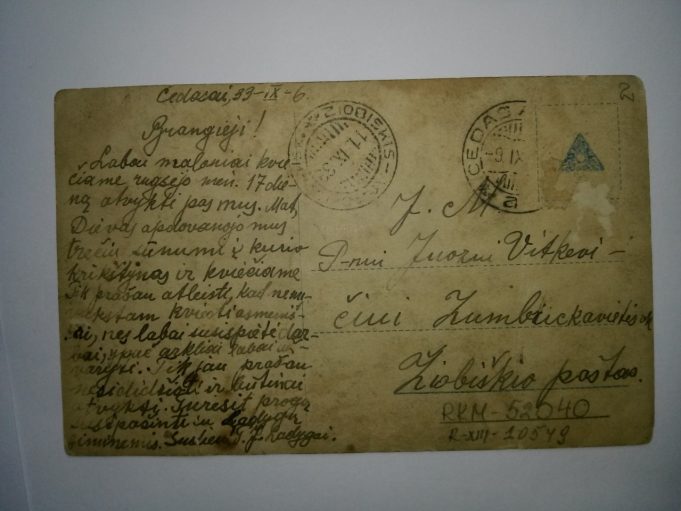 Cedasai, 33-IX-6
Brangieji!
Labai maloniai kvie-
čiame rugsėjo mėn. 17 die-
ną atvykti pas mus. Mat,
Dievas apdovanojo mus
trečiu sūnumi į kurio
krikštynas ir kviečiame
Tik prašau atleisti, kad nenu-
vykstam kviesti asmeniš-
kai, nes labai susispietė dar-
bai, ypač arkliai labai
Tik jau prašau
nesididžiuoti ir būtinai
atvykti. Turėsit progą
susipažinti su Ladygų
šeimomis. J. J. Ladygai.
ŽIOBIŠKIS
11.IX.33
CEDAS
-9.IX
2
J. M.
P-nui Juozui Vitkevi-
čiui Zumbrickavietės vk
Žiobiškio paštas.
RKM-52040
R-XIII-10549